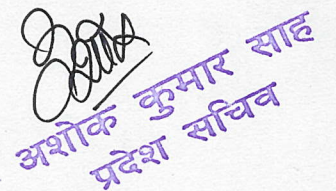 अशोक कुमार साह
प्रदेश सचिव